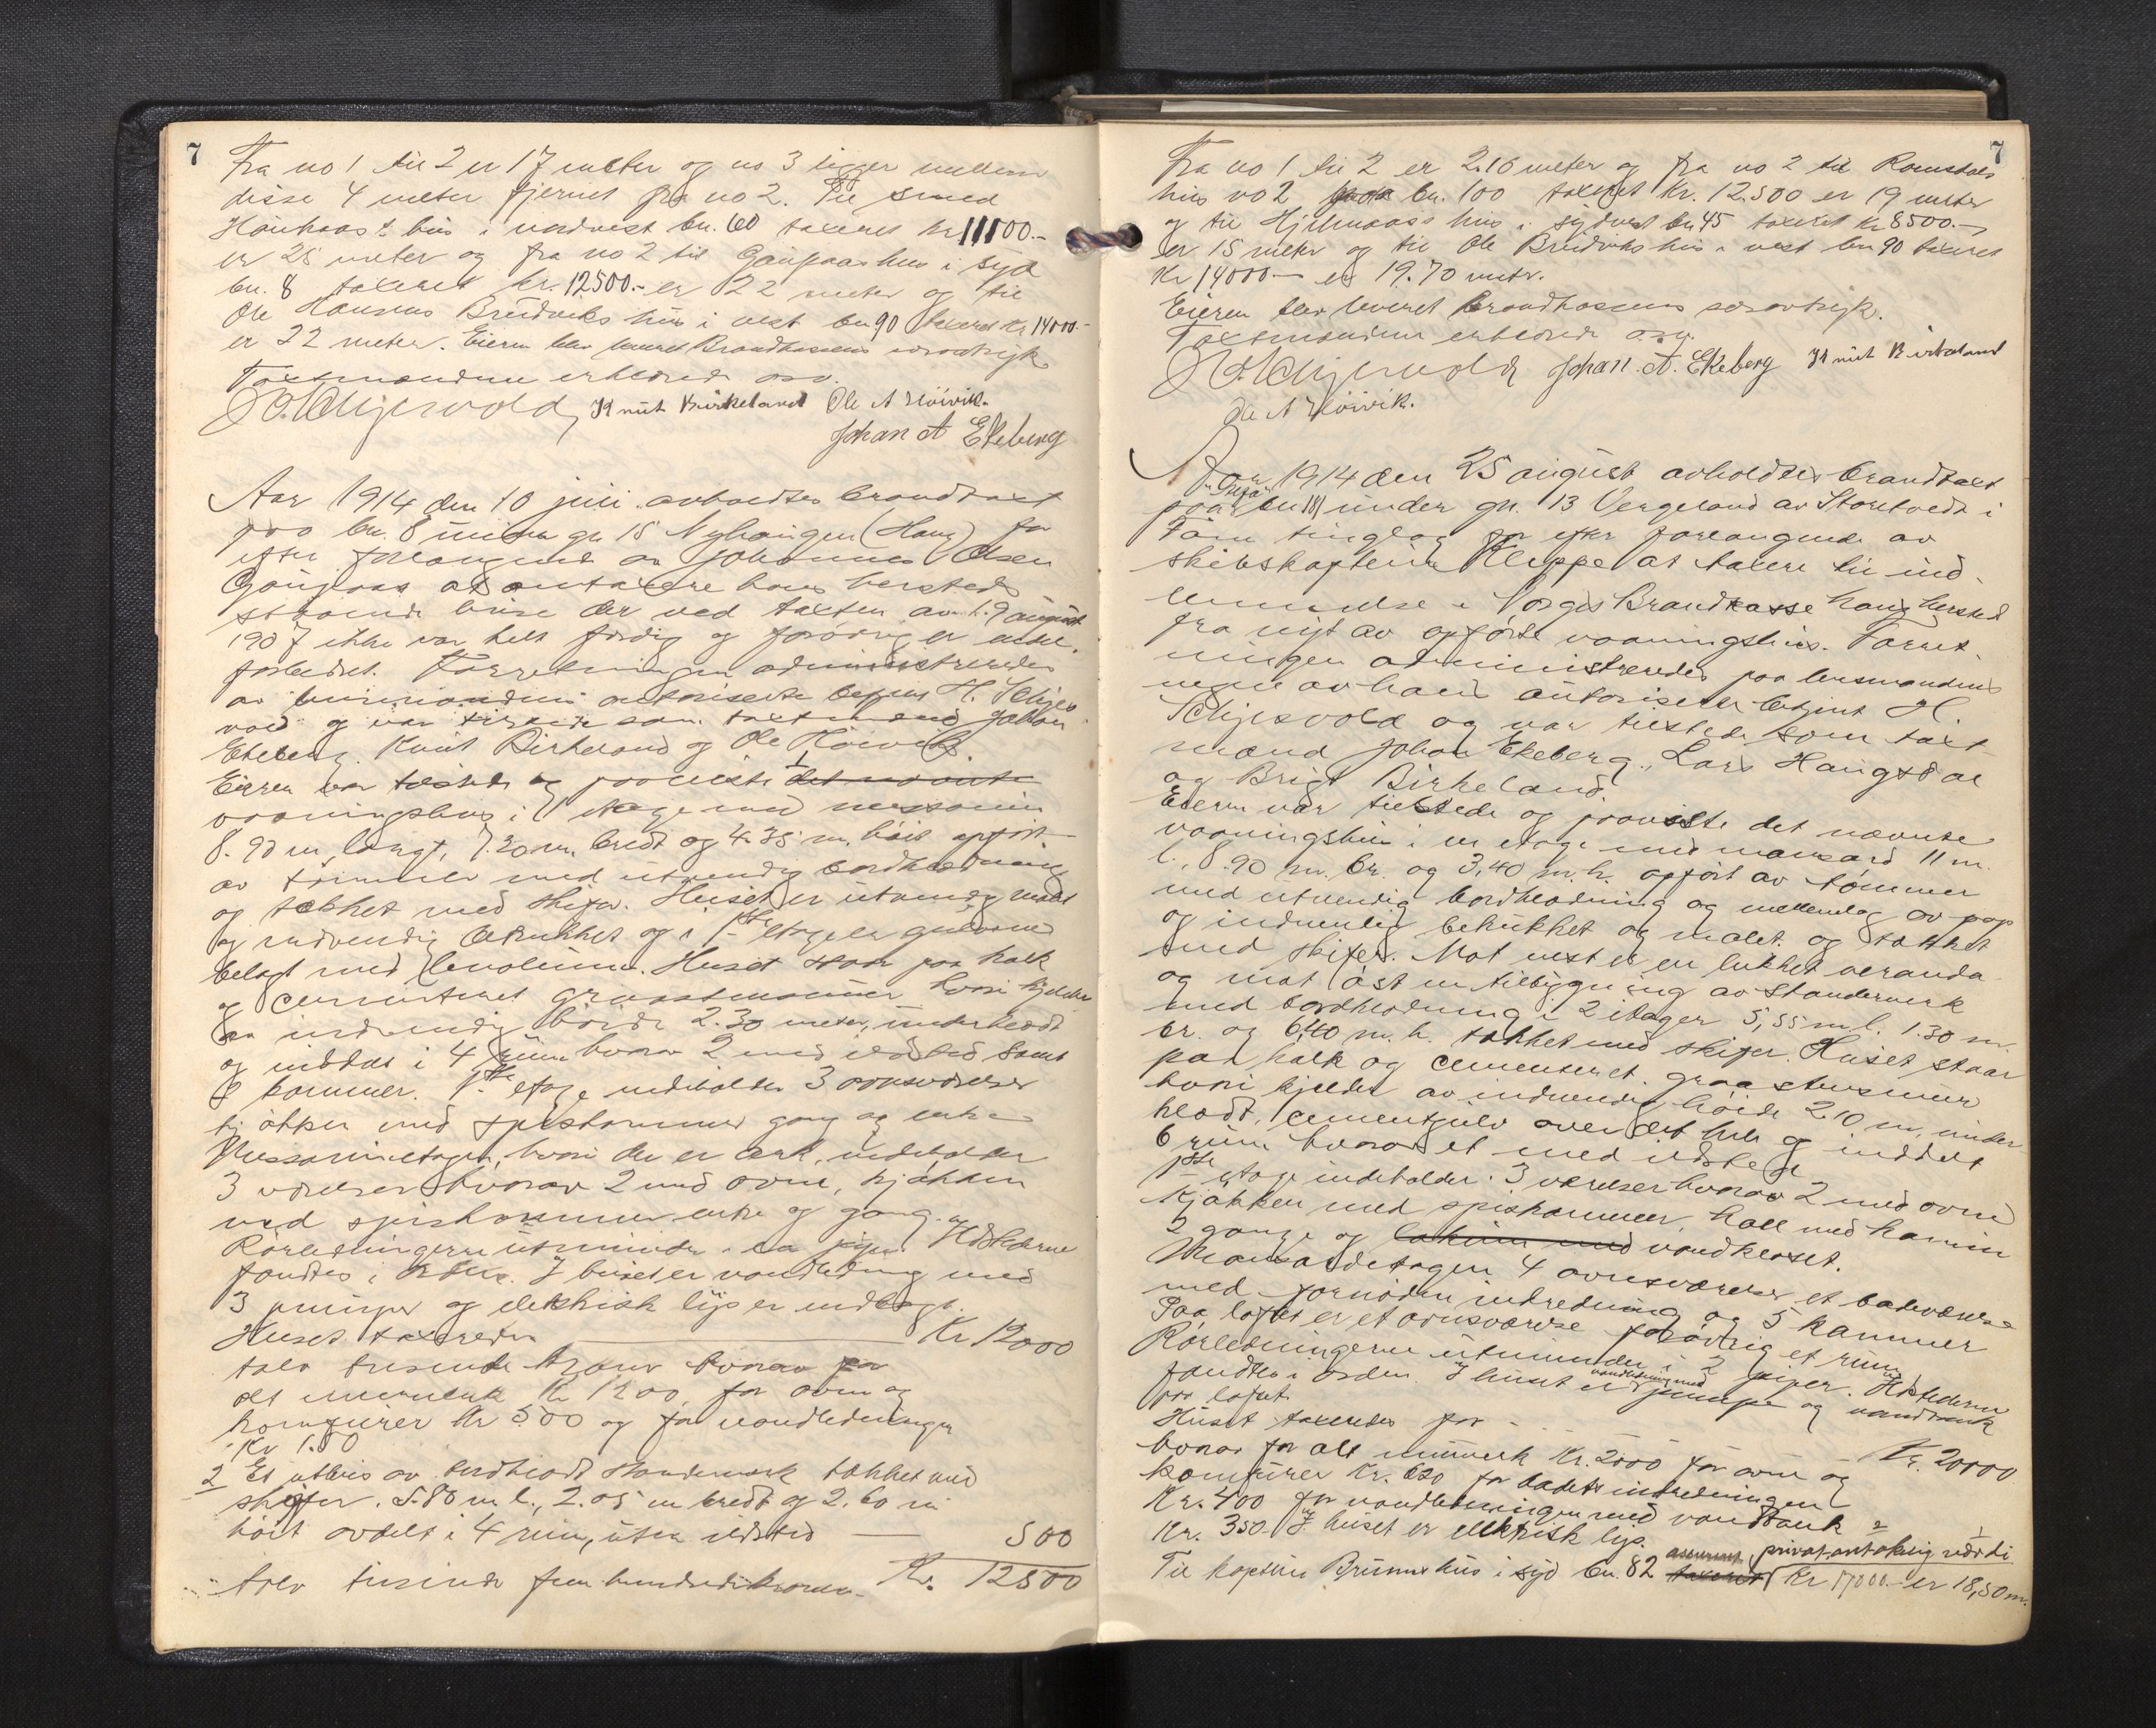 7
Fra no 1 til 2 er 17 meter og no 3 ligger mellem
disse 4 meter fjernet fra no 2. Til smed
Haukaas's hus i nordvest bn. 60 taxeret kr 11100.-
er 28 meter og fra no 2 til Gaupaas hus i syd
bn. 8 taxeret kr. 12500.- er 22 meter og til
Ole Hansens Breidviks hus i vest bn 90 taxeret kr 14000.-
er 22 meter. Eieren blev leveret Brandkassens
Taxtmændene erholdt osv.
H. Schjesvold, Knut Birkeland Ole A Høivik.
Johan A Ekeberg
Aar 1914 den 10 juli avholdtes brandtaxt
paa bn. 8 under gr. 15 Nyhaugen (Haug) for
efter forlangende av Johannes Olsen
Gaupaas at omtaxere hans hersteds
staaende huse der ved taxten av h. 9 august
1907 ikke var helt færdig og forøvrig er
forbedret. Forretningen administreredes
av lensmandens autoriserte betjent H. Schjes
vold og var tilstede som taxtmænd Johan
Ekeberg. Knut Birkeland og Ole Høivik.
Eieren var tilstede og paaviste 1 det nævnte
vaaningshus i 1 etage med messanin
8.90 m. langt, 7.20 m. bredt og 4.35 m. høit opført
av tømmer med utvendig bordklædning
og tækket med skifer. Huset er utvendig malet
og indvendig betrukket og i 1ste etage er gulvene
belagt med linoleum. Huset staar paa kalk
og cementeret graastensmur hvori kjelder
av indvendig høide 2.30 meter, underklædt
og inddelt i 4 rum hvorav 2 med ildsted samt
kammer. 1ste etage indeholder 3 ovnsværelser
kjøkken med spiskammer gang og entre
Messaninetagen, hvori der er ark, indeholder
3 værelser hvorav 2 med ovne, kjøkken
med spiskammer entre og gang.
Rørledningerne utmunder i en pipe og Ildstederne
fandtes i orden. I huset er vandledning med
3 pumper og elektrisk lys er indlagt.
Huset taxeredes Kr 12000
tolv tusinde kroner hvorav for
alt murverk Kr 1200, for ovne og
komfurer Kr 500 og for vandledningen
Kr 150
2 Et uthus av bordklædt standerverk tækket med
skifer. 5.80 m. l., 2.05 m bredt og 2.60 m
høit avdelt i 4 rum, uten ildsted 500
tolv tusinde fem hundrede kroner Kr. 12500
7
Fra no 1 til 2 er 2.16 meter og fra no 2 til Romstads
hus no 2 bn. 100 taxeret kr. 12.500 er 19 meter
og til Hjelmaas's hus i sydvest bn 45 taxeret kr 8500.-
er 15 meter og til Ole Breidviks hus i vest bn 90 taxeret
kr 14000.- er 19.70 metr.
Eieren blev leveret brandkassens
Taxtmændene erholdt osv.
H. Schjesvold Johan A. Ekeberg Knut Birkeland
Ole A Høivik.
Aar 1914 den 25 august avholdtes brandtaxt
paa bn 181 under gn. 13 Vergeland av Storetvedt i
Fane tinglag for efter forlangende av
skibskaptein Kleppe at taxere til ind-
lemmelse i Norges Brandkasse hans hersted
fra nyt av opførte vaaningshus. Forret-
ningen administreredes paa lensmandens
vegne av hans autoriserte betjent H.
Schjesvold og var tilstede som taxt
mænd Johan Ekeberg., Lars Haugsdal
og Brigt Birkeland.
Eieren var tilstede og paaviste det nævnte
vaaningshus i en etage med mansard 11 m.
l., 8.90 m. br. og 3,40 m. h. opført av tømmer
med utvendig bordklædning og mellemlag av pap
og indvendig betrukket og malet og tækket
med skifer. Mot vest er en lukket veranda
og mot øst en tilbygning av standerverk
med bordklædning i 2 etager 5,55 m l. 1.30 m.
br. og 6,40 m. h. tækket med skifer. Huset staar
paa kalk og cementeret graastensmur
hvori kjelder av indvendig høide 2.10 m. under-
klædt, cementgulv over det hele og inddelt
6 rum hvorav et med ildsted
1ste etage indeholder. 3 værelser hvorav 2 med ovne
kjøkken med spiskammer, hall med kamin
2 gange og vandkloset.
Mansardetagen 4 ovnsværelser et badeværelse
med fornøden indredning og 5 kammer
Paa loftet er et ovnsværelse forøvrig et rum
Rørledningerne utmunder i 2 piper. Ildstederne
fandtes i orden. I huset er vandledning med pumpe og vandtank
paa loftet.
Huset taxeredes for Kr. 20000
hvorav for alt murverk Kr. 2000 for ovne og
komfurer Kr. 620 for badets indredningen
Kr. 400 for vandledningen med vandtank
Kr. 350 I huset er elektrisk lys.
Til kaptein Bruuns hus i syd bn. 82 taxeret assureret privat antakelig værdi Kr 17000.- er 18,50 m.